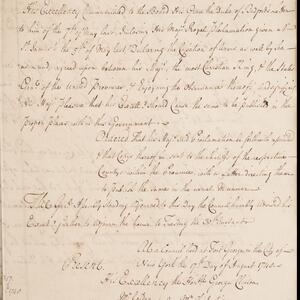 His Excellency Communicated to the Board His Grace the Duke of Bedfords
to him of the 7th of May last Inclosing His Majtys Royal Proclamation given at
St James's the of May last Declaring the Cessation of Arms as well by Sea
and agreed upon between his Majty, the most Christian King, & the States
Genl of the United Provinces & Enjoying the Observance thereof and
His Majtys Pleasure that his Excelly Should Cause the same to be published in the
proper places within his Government.
Ordered that his Majtys said Proclamation be published
that Copys thereof be sent to the Sheriffs of the respective
Countys within the Province with a Letter directing them
to publish the same in the usual Manner
The Assembly standing Adjourned to this day the Council humbly advised his
Excelly further to adjourn the same to Tuesday the Instant
At a Council held at Fort George in the City of
New York the 17th Day of August 1748.
Present
His Excellency the Honble George Clinton